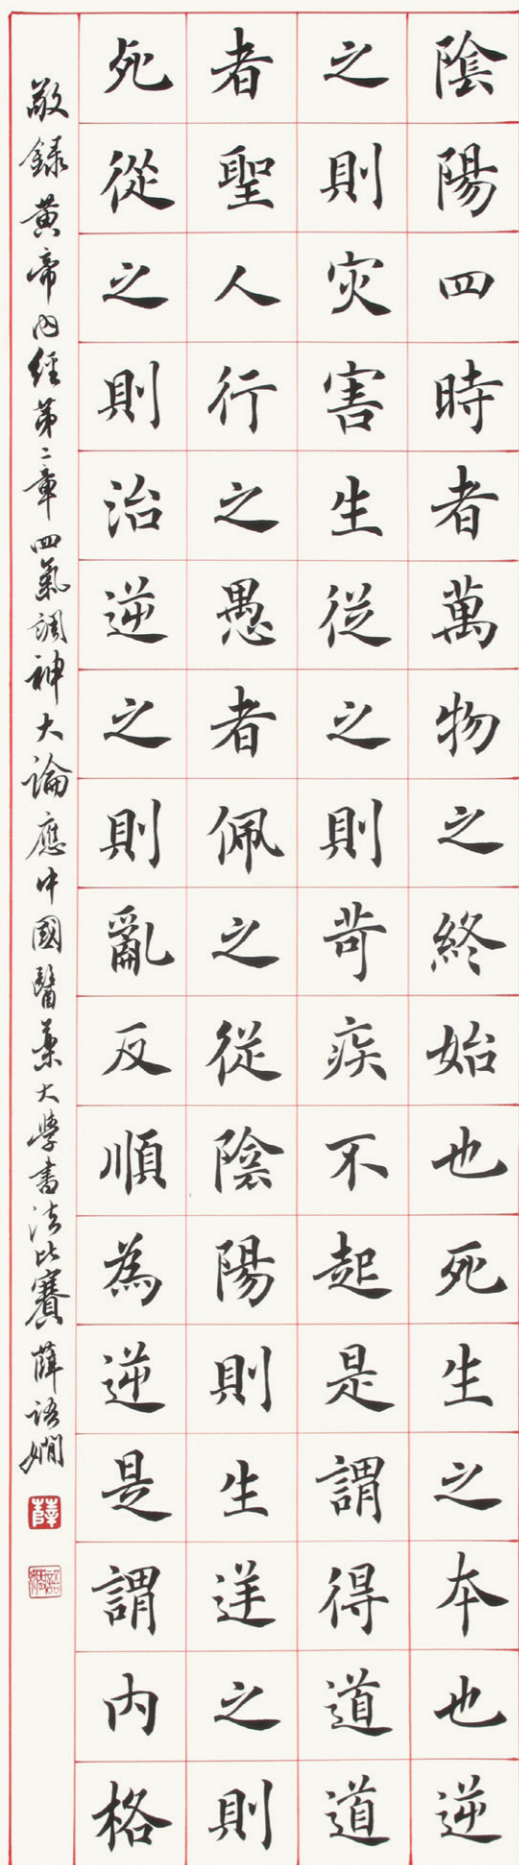 陰陽四時者萬物之終始也死生之本也逆
之則灾害生從之則苛疾不起是謂得道道
者聖人行之愚者佩之從陰陽則生逆之則
死從之則治逆之則亂反順為逆是謂内格
敬錄黄帝内經第二章四氣調神大論應中國醫藥大學書法比賽薛語嫺
薛